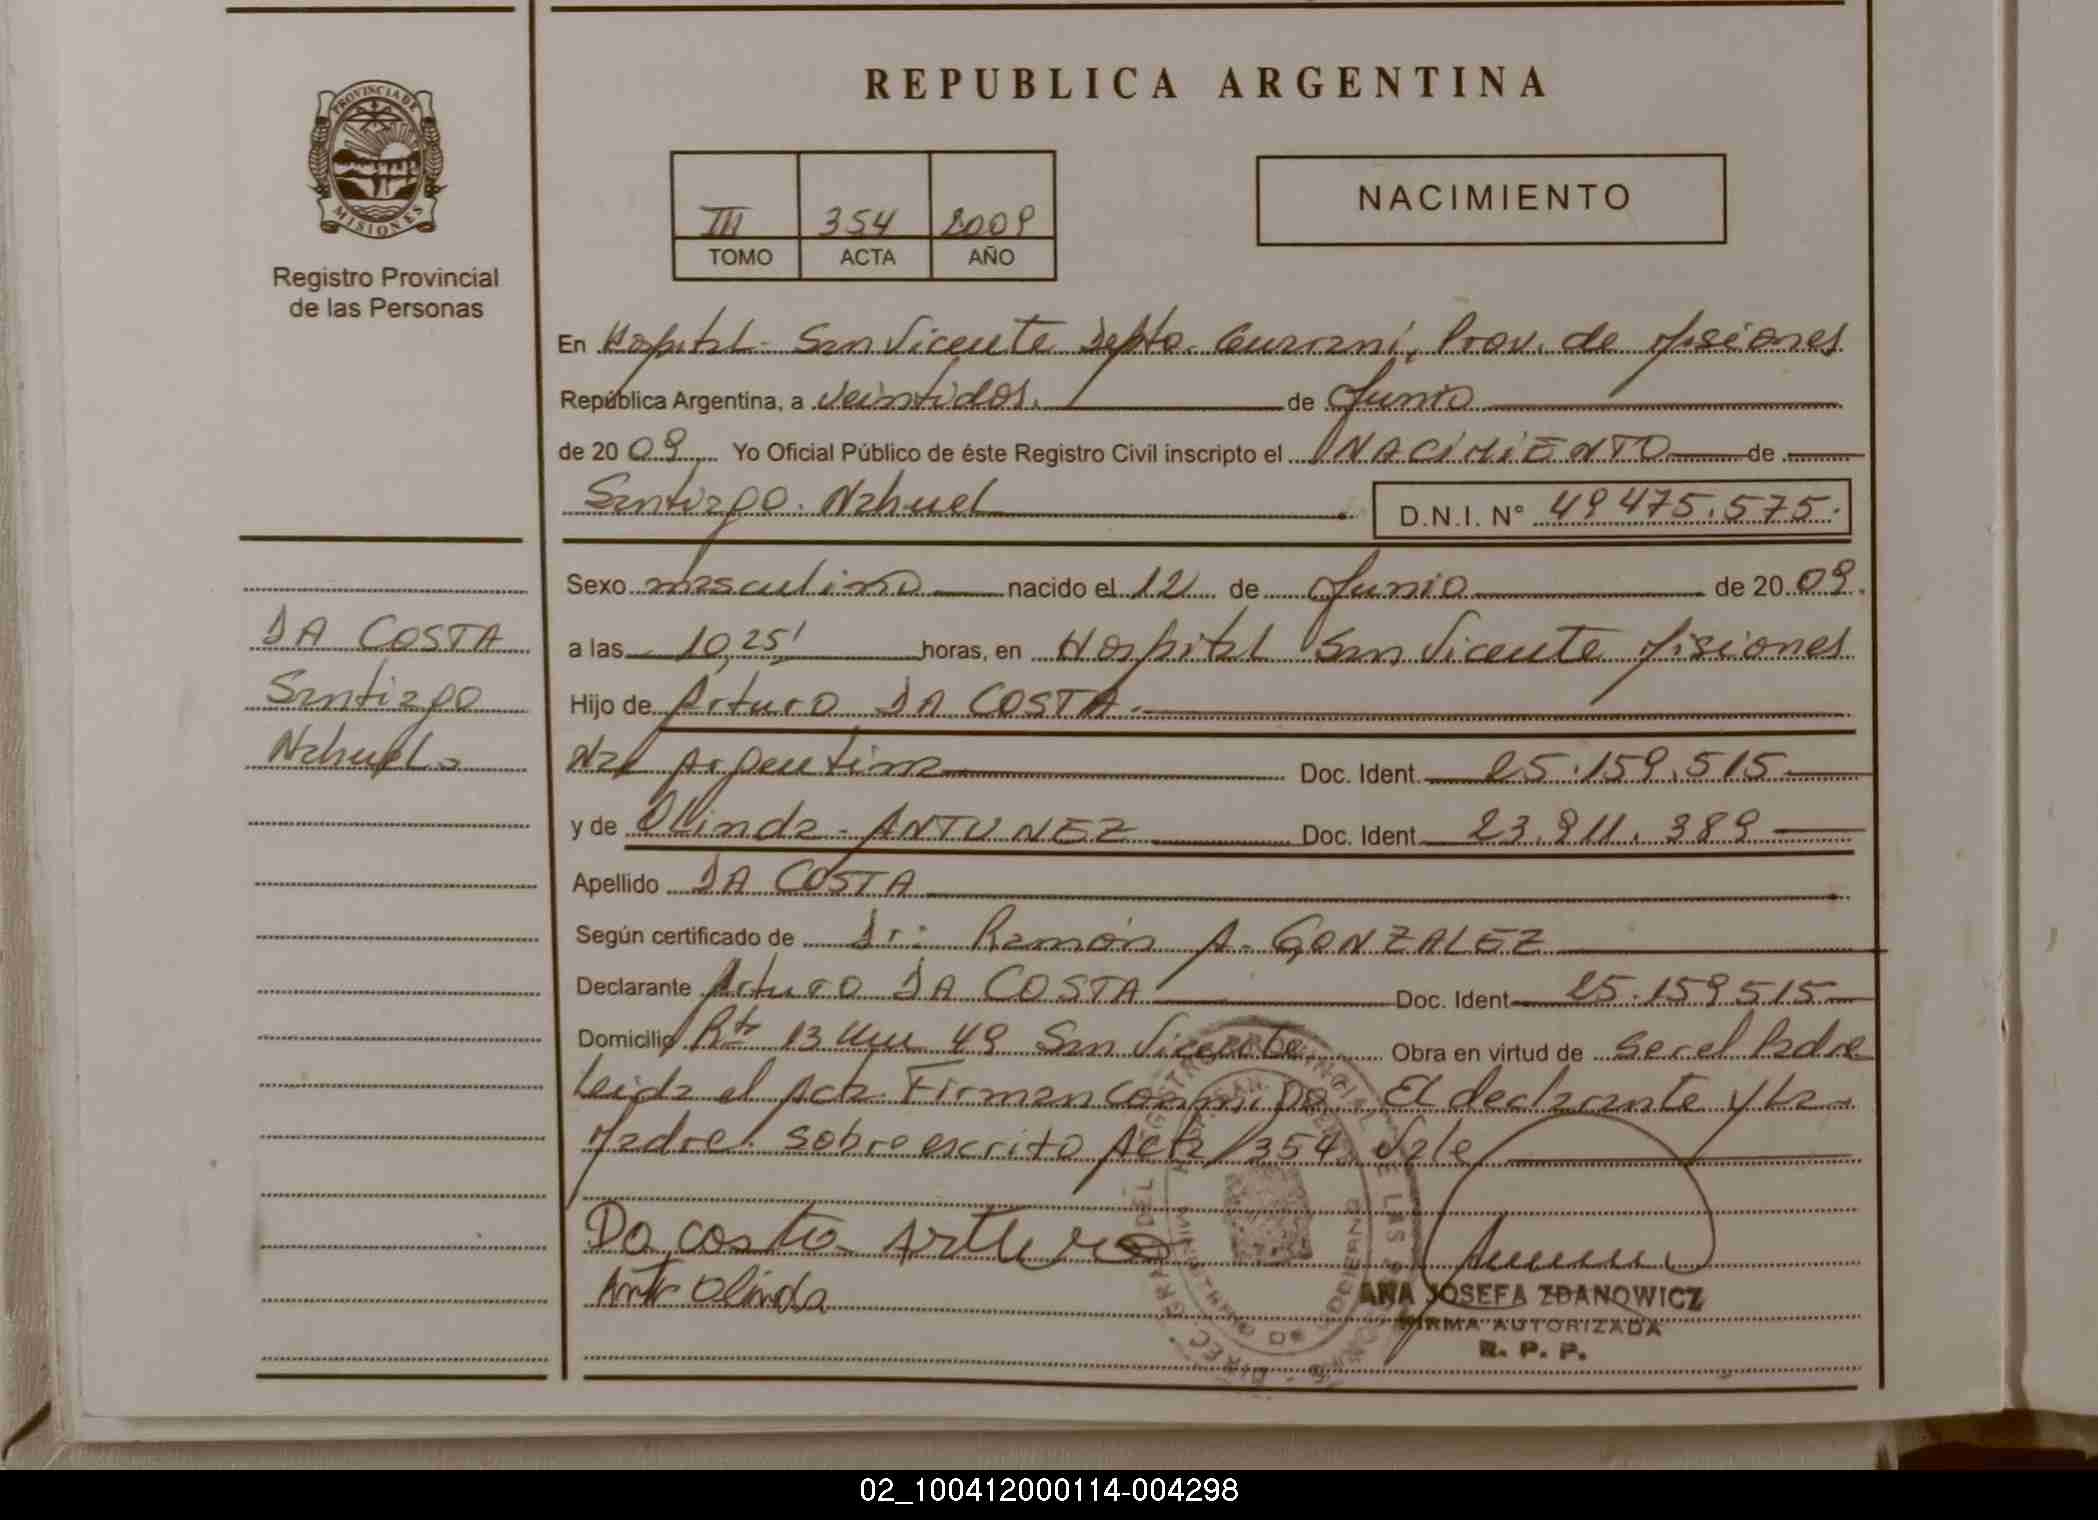 REPUBLICA ARGENTINA
PROVINCIA DE
MISIONES
Registro Provincial
de las Personas
III 354 2009
TOMO ACTA AÑO
NACIMIENTO
En Hospital San Vicente Depto. Guaraní, Prov. de Misiones
República Argentina, a veintidos. de Junio
de 2009 Yo Oficial Público de éste Registro Civil inscripto el NACIMIENTO de
Santiago Nahuel
D.N.I. N° 49 475.575.
DA COSTA
Santiago
Nahuel
Sexo masculino nacido el 12 de Junio de 2009.
a las 10,25' horas, en Hospital San Vicente Misiones
Hijo de Arturo DA COSTA.
Nac Argentina Doc. Ident. 25.159.515
y de Olinda ANTUNEZ Doc. Ident. 23.911.389
Apellido DA COSTA
Según certificado de Dr: Ramón A. GONZALEZ
Declarante Arturo DA COSTA Doc. Ident 25.159515
Domicilio Rta 13 Km 49 San Vicente Obra en virtud de ser el Padre
Leida el Acta Firman conmigo El declarante y La
Madre. sobreescrito Acta 354 Vale
Da costa Arturo
Olinda
ANA JOSEFA ZDANOWICZ
FIRMA AUTORIZADA
R. P. P.
02_100412000114-004298